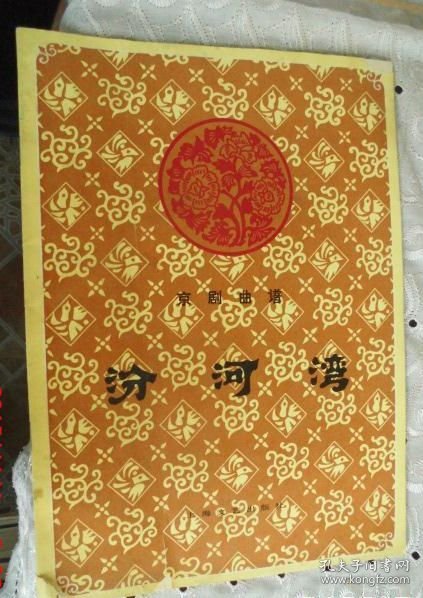 京剧曲谱
汾河湾
上海文艺出版社
孔夫子旧书网
www.kongfz.com